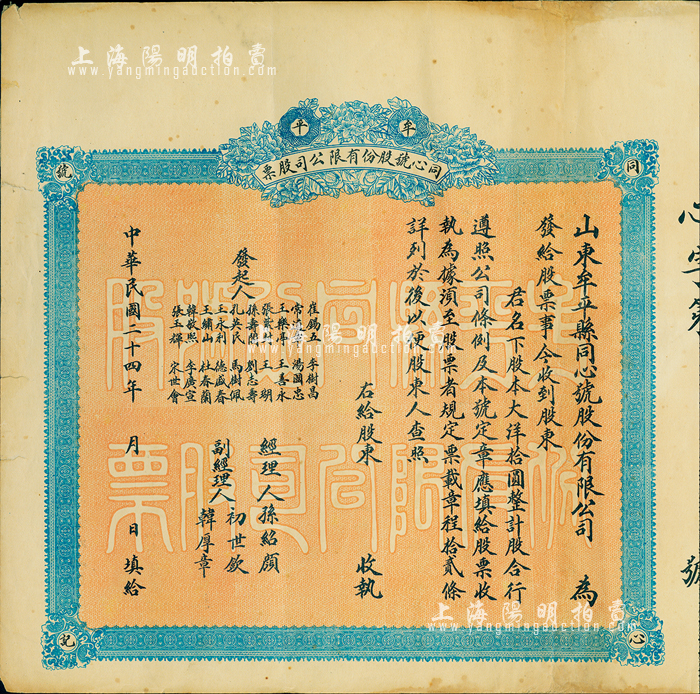 上海陽明拍賣
www.yangmingauction.com
牟平
同心號股份有限公司股票
同
心
號
記
心字第 號
山東牟平縣同心號股份有限公司 為
發給股票事今收到股東
君名下股本大洋拾圓整計股合行
遵照公司條例及本號定章應填給股票收
執為據須至股票者規定票載章程拾貳條
詳列於後以便股東人查照
右給股東 收執
發起人
崔錫五 李樹昌
湯國忠
王善永
劉志壽
孔英民 馬樹佩
王永利 德盛春
王繡山 杜春蘭
韓敬熙 李廣宣
張玉輝 宋世會
經理人孫紹顏
副經理人初世欽
韓厚章
中華民國二十四年 月 日填給
上海陽明拍賣
www.yangmingauction.com
上海陽明拍賣
www.yangmingauction.com